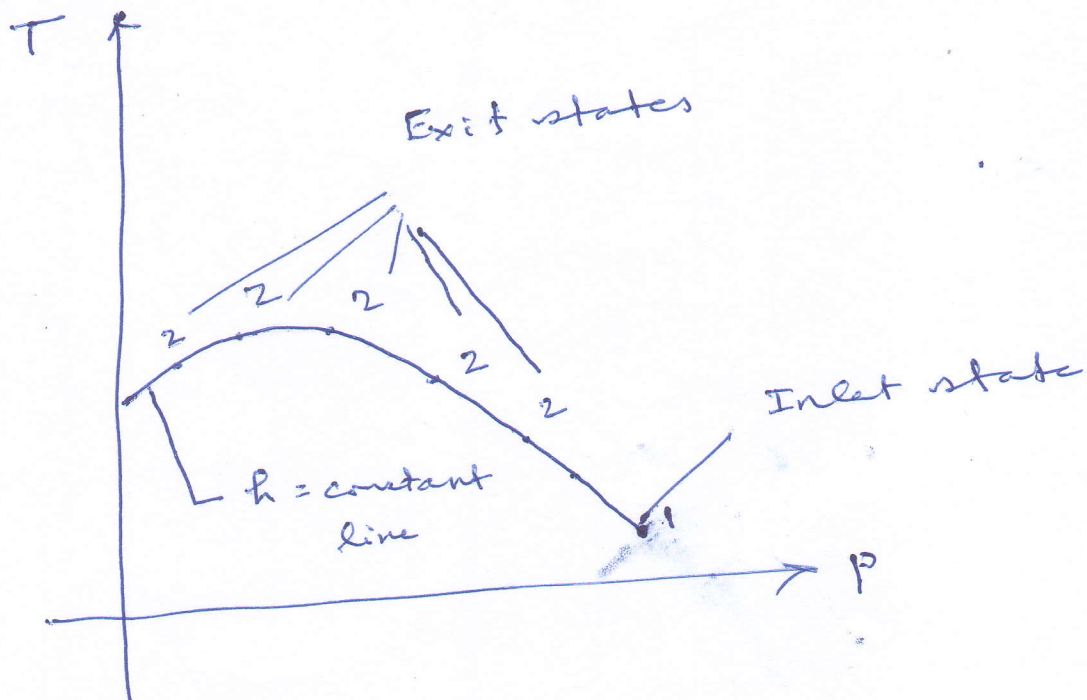 T
Exit states
2
2
2
2
2
Inlet state
h = constant
line
1
P